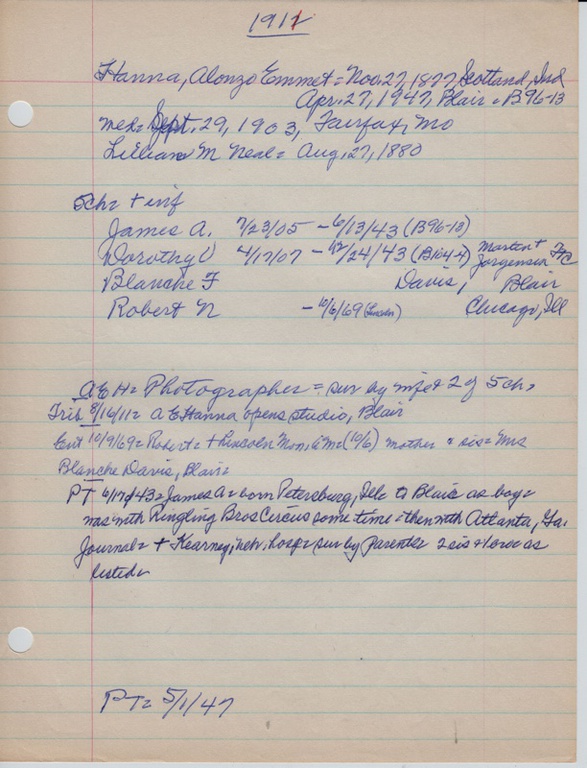 1911
Hanna, Alonzo Emmet = Nov. 27, 1877, Scotland, Ind
Apr. 27, 1947, Blair = B96-13
med = Sept. 29, 1903, Fairfax, Mo
Lillian M Neal = Aug. 27, 1880
5ch = + inf
James A. 7/23/05 - 6/13/43 (B96-13)
Dorothy V 4/17/07 - 12/24/43 (B104-4) Marten + Jorgensen FC
Blanche F Davis, Blair
Robert N - 10/6/69 (Lincoln) Chicago, Ill
A E H = Photographer = sur by wife & 2 of 5 ch =
Trib 8/16/11 = A E Hanna opens studio, Blair
Ent 10/9/69 = Robert = + Lincoln Mon. a m = (10/6) mother & sis = Mrs
Blanche Davis, Blair =
PT 6/17/43 = James A = born Petersburg, Ill = to Blair as boy =
was with Ringling Bros Circus some time = then with Atlanta, Ga.
Journal = + Kearney, Nebr. hosp = sur by parents 2 sis & 1 bro as
listed =
PT = 5/1/47